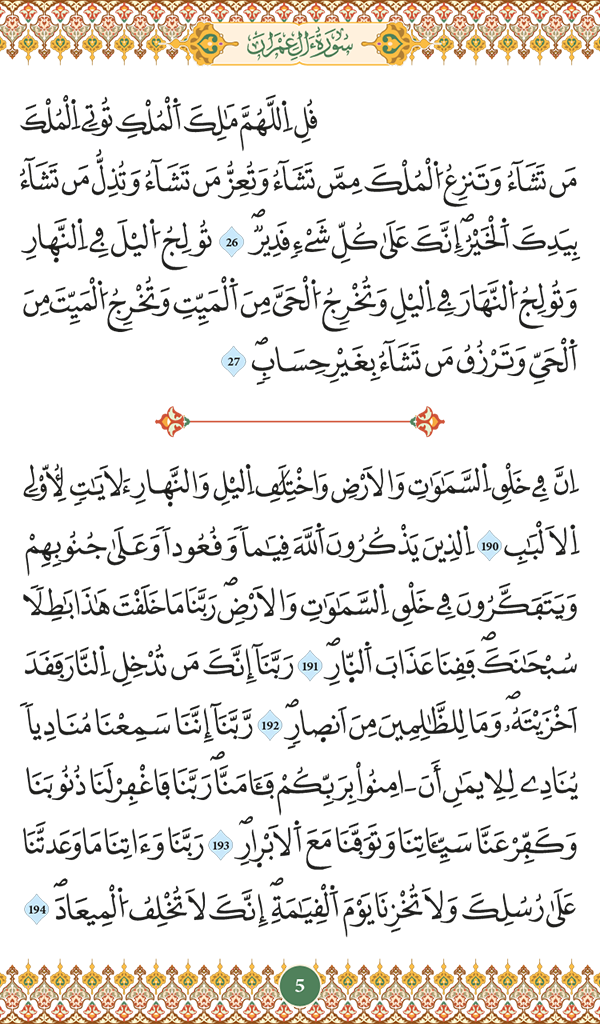 سُورَةُ ءَالِ عِمْرَانَ
قُلِ اِ۬للَّهُمَّ مَٰلِكَ اَ۬لْمُلْكِ تُوتِے اِ۬لْمُلْكَ
مَن تَشَآءُ وَتَنزِعُ اُ۬لْمُلْكَ مِمَّن تَشَآءُ وَتُعِزُّ مَن تَشَآءُ وَتُذِلُّ مَن تَشَآءُ
بِيَدِكَ اَ۬لْخَيْرُۖ إِنَّكَ عَلَىٰ كُلِّ شَےْءٖ قَدِيرٞۖ 26 تُولِجُ اُ۬ليْلَ فِے اِ۬لنَّه۪ارِ
وَتُولِجُ اُ۬لنَّهَارَ فِے اِ۬ليْلِ وَتُخْرِجُ اُ۬لْحَيَّ مِنَ اَ۬لْمَيِّتِ وَتُخْرِجُ اُ۬لْمَيِّتَ مِنَ
اَ۬لْحَيِّ وَتَرْزُقُ مَن تَشَآءُ بِغَيْرِ حِسَابٖۖ 27
اِنَّ فِے خَلْقِ اِ۬لسَّمَٰوَٰتِ وَالَارْضِ وَاخْتِلَٰفِ اِ۬ليْلِ وَالنَّه۪ارِ ءَلَايَٰتٖ لِّأُوْلِے
اِ۬لَالْبَٰبِ 190 اِ۬لذِينَ يَذْكُرُونَ اَ۬للَّهَ قِيَٰماٗ وَقُعُوداٗ وَعَلَىٰ جُنُوبِهِمْ
وَيَتَفَكَّرُونَ فِے خَلْقِ اِ۬لسَّمَٰوَٰتِ وَالَارْضِۖ رَبَّنَا مَا خَلَقْتَ هَٰذَا بَٰطِلاٗ
سُبْحَٰنَكَۖ فَقِنَا عَذَابَ اَ۬لنّ۪ارِۖ 191 رَبَّنَآ إِنَّكَ مَن تُدْخِلِ اِ۬لنَّارَ فَقَدَ
اَخْزَيْتَهُۥۖ وَمَا لِلظَّٰلِمِينَ مِنَ اَنص۪ارٖۖ 192 رَّبَّنَآ إِنَّنَا سَمِعْنَا مُنَادِياٗ
يُنَادِے لِلِايمَٰنِ أَنَ اٰمِنُواْ بِرَبِّكُمْ فَـَٔامَنَّاۖ رَبَّنَا فَاغْفِرْ لَنَا ذُنُوبَنَا
وَكَفِّرْ عَنَّا سَيِّـَٔاتِنَا وَتَوَفَّنَا مَعَ اَ۬لَابْر۪ارِۖ 193 رَبَّنَا وَءَاتِنَا مَا وَعَدتَّنَا
عَلَىٰ رُسُلِكَ وَلَا تُخْزِنَا يَوْمَ اَ۬لْقِيَٰمَةِۖ إِنَّكَ لَا تُخْلِفُ اُ۬لْمِيعَادَۖ 194
5